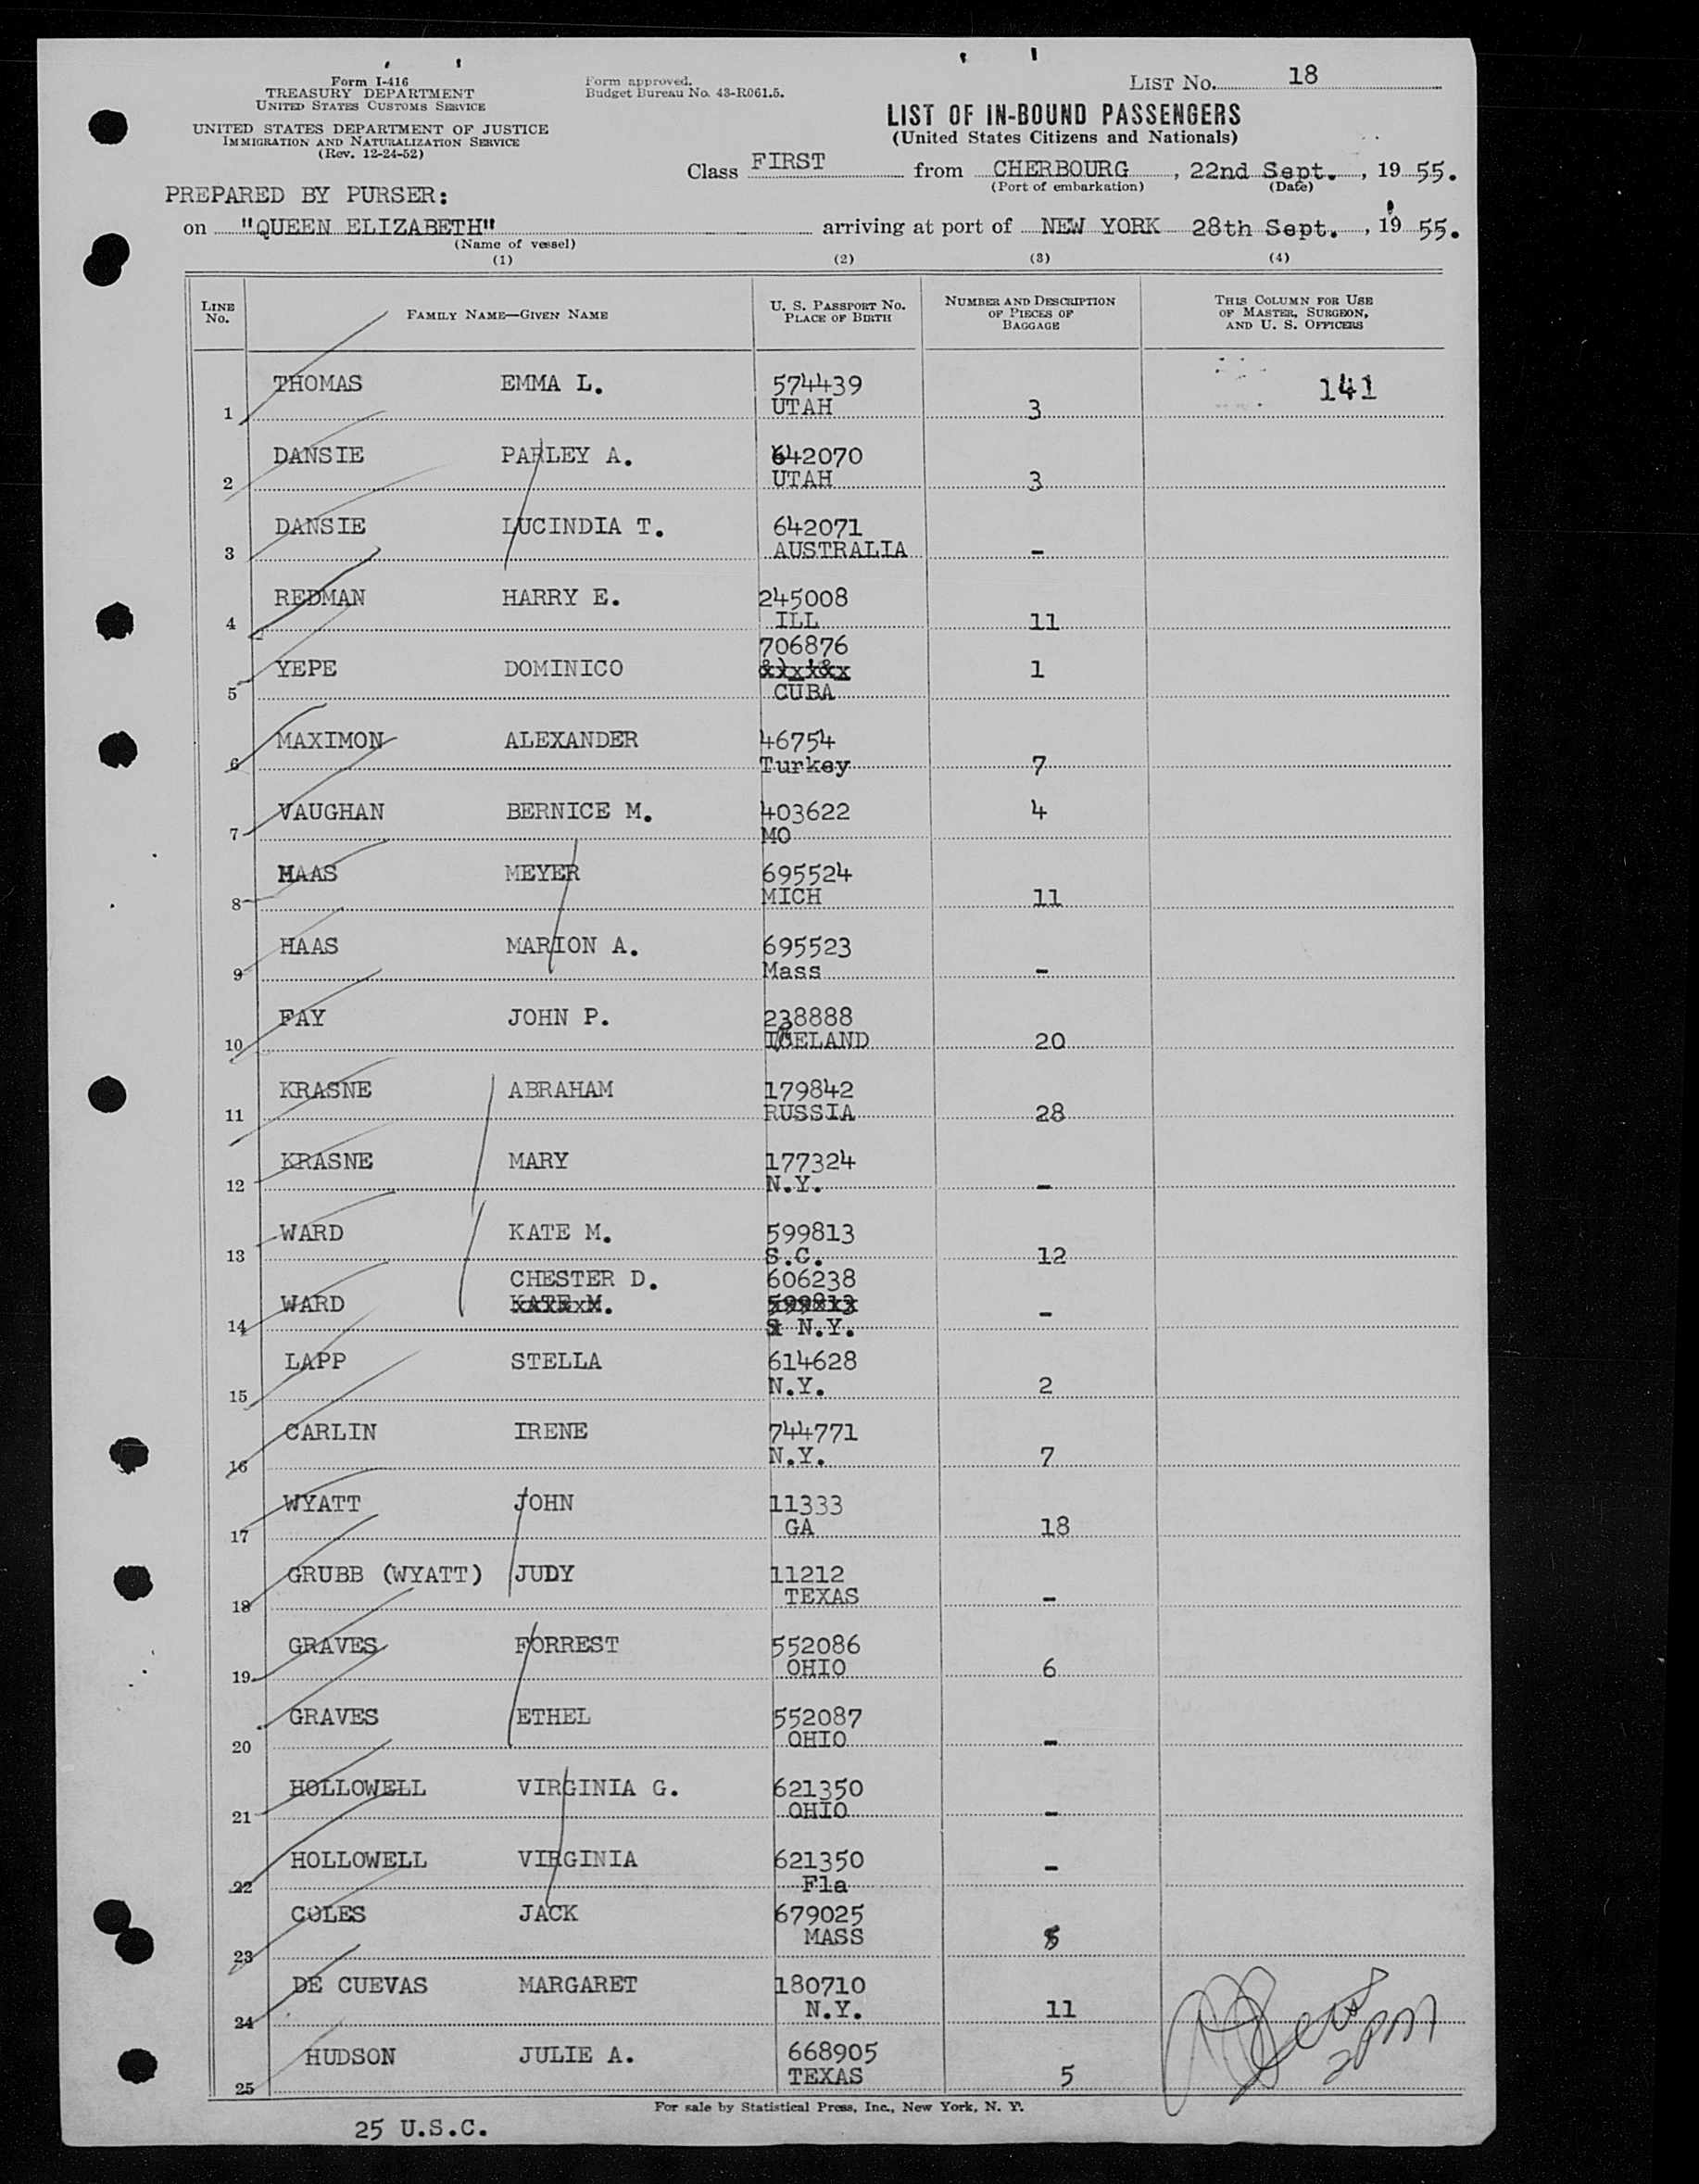 Form I-416
TREASURY DEPARTMENT
UNITED STATES CUSTOMS SERVICE
UNITED STATES DEPARTMENT OF JUSTICE
IMMIGRATION AND NATURALIZATION SERVICE
(Rev. 12-24-52)
Form approved.
Budget Bureau No. 43-R061.5.
LIST No. 18
LIST OF IN-BOUND PASSENGERS
(United States Citizens and Nationals)
Class FIRST from CHERBOURG, 22nd Sept., 1955.
(Port of embarkation) (Date)
PREPARED BY PURSER:
on "QUEEN ELIZABETH" arriving at port of NEW YORK 28th Sept., 1955.
(Name of vessel)
(1) (2) (3) (4)
LINE No. FAMILY NAME—GIVEN NAME U. S. PASSPORT No. PLACE OF BIRTH NUMBER AND DESCRIPTION OF PIECES OF BAGGAGE THIS COLUMN FOR USE OF MASTER, SURGEON, AND U. S. OFFICERS
THOMAS EMMA L. 574439 141
1 UTAH 3
DANSIE PARLEY A. 642070
2 UTAH 3
DANSIE LUCINDIA T. 642071
3 AUSTRALIA -
REDMAN HARRY E. 245008
4 ILL 11
706876
YEPE DOMINICO 1
5 CUBA
MAXIMON ALEXANDER 46754
6 Turkey 7
VAUGHAN BERNICE M. 403622 4
7 MO
HAAS MEYER 695524
8 MICH 11
HAAS MARION A. 695523
9 Mass -
FAY JOHN P. 238888
10 IRELAND 20
KRASNE ABRAHAM 179842
11 RUSSIA 28
KRASNE MARY 177324
12 N.Y. -
WARD KATE M. 599813
13 S.C. 12
CHESTER D. 606238
WARD KATE M. 599813 -
14 N.Y.
LAPP STELLA 614628
15 N.Y. 2
CARLIN IRENE 744771
16 N.Y. 7
WYATT JOHN 11333
17 GA 18
GRUBB (WYATT) JUDY 11212
18 TEXAS -
GRAVES FORREST 552086
19 OHIO 6
GRAVES ETHEL 552087
20 OHIO -
HOLLOWELL VIRGINIA G. 621350
21 OHIO -
HOLLOWELL VIRGINIA 621350 -
22 Fla
COLES JACK 679025
23 MASS 5
DE CUEVAS MARGARET 180710
24 N.Y. 11
HUDSON JULIE A. 668905
25 TEXAS 5
For sale by Statistical Press, Inc., New York, N. Y.
25 U.S.C.